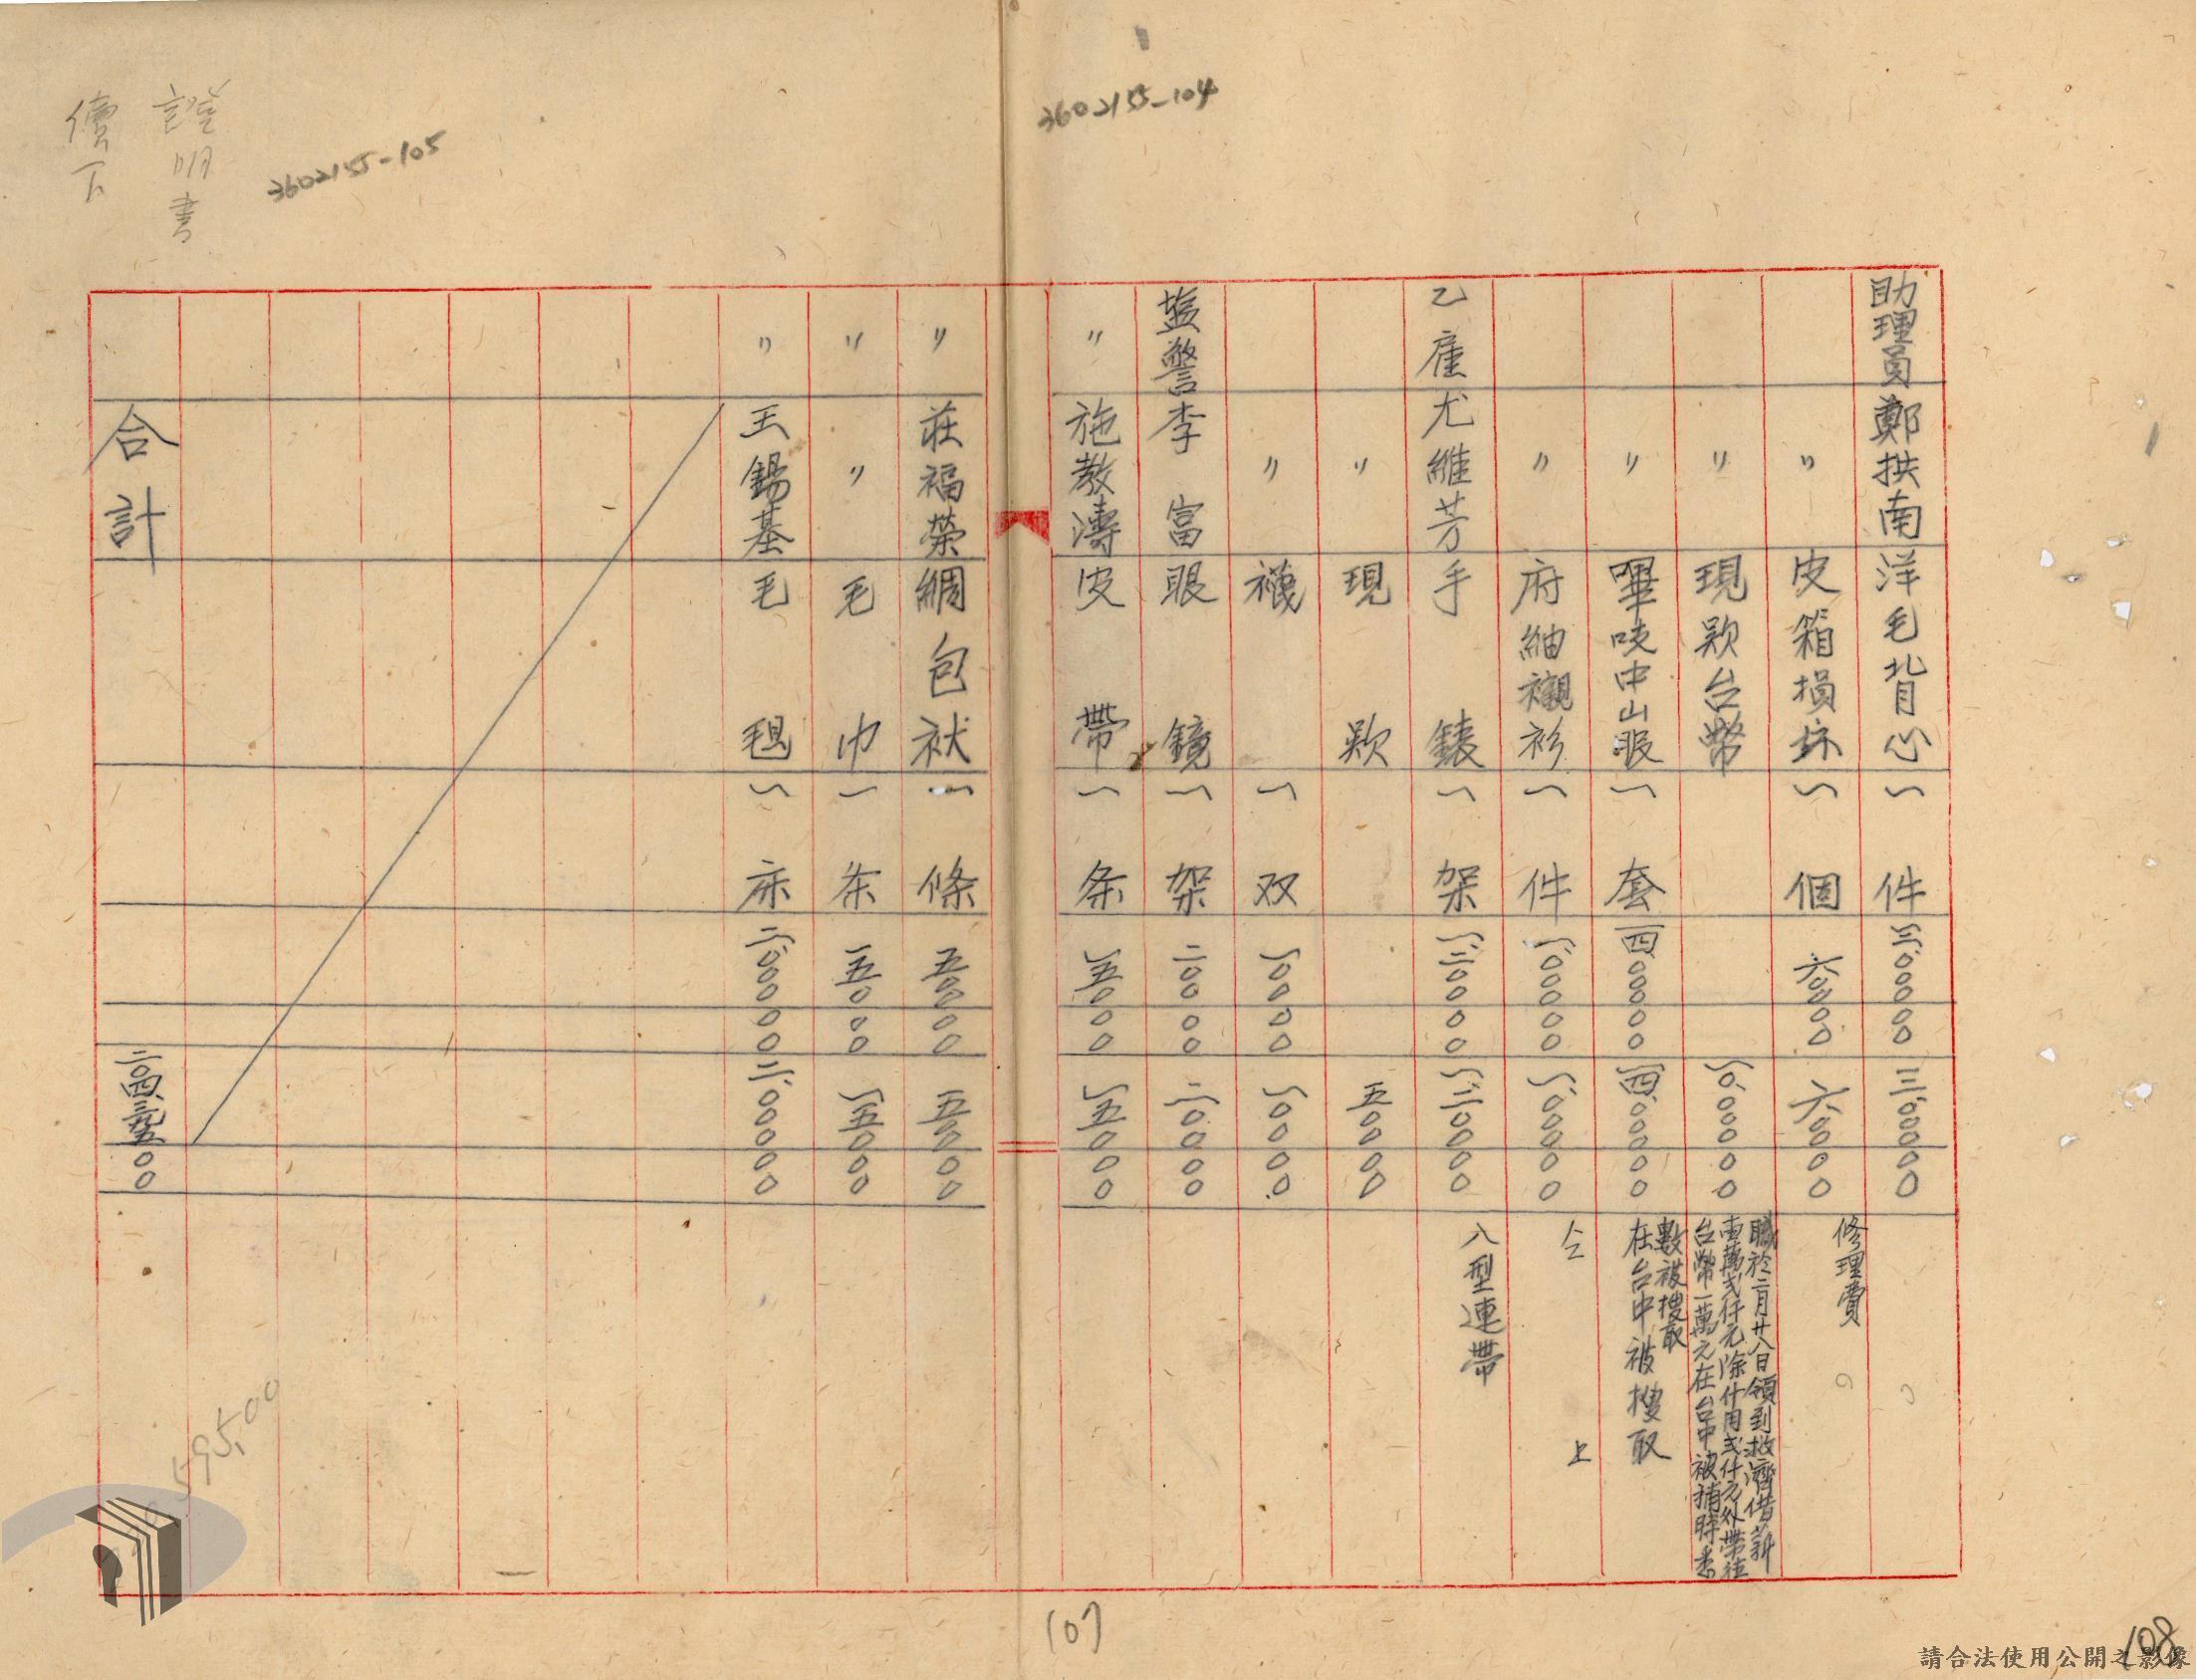 3602155-104
助理員 鄭拱南 洋毛背心 一件 三、〇〇〇〇〇 三、〇〇〇〇〇
〃 皮箱損坏 一個 六〇〇〇〇 六〇〇〇〇 修理費
〃 現欵台幣 一〇、〇〇〇〇〇 職於二月廿八日領到救濟借薪
壹萬弍仟元除什用弍仟元外帶往
台幣一萬元在台中被捕時悉
數被搜取
〃 嗶吱中山服 一套 四、〇〇〇〇〇 四、〇〇〇〇〇 在台中被搜取
〃 府紬襯衫 一件 一、〇〇〇〇〇 一、〇〇〇〇〇 仝上
乙雇 尤維芳 手錶 一架 一、三〇〇〇〇 一、三〇〇〇〇 八型連帶
〃 現欵 五〇〇〇〇
〃 襪 一双 一〇〇〇〇 一〇〇〇〇
盐警 李富 眼鏡 一架 二〇〇〇〇 二〇〇〇〇
〃 施教濤 皮帶 一条 一五〇〇〇 一五〇〇〇
107
3602155-105
〃 莊福榮 綢包袱 一條 五〇〇〇〇 五〇〇〇〇
〃 〃 毛巾 一条 一五〇〇〇 一五〇〇〇
〃 王錫基 毛毯 一床 二、〇〇〇〇〇 二、〇〇〇〇〇
合計
證明書
價下
595,00
108
請合法使用公開之影像